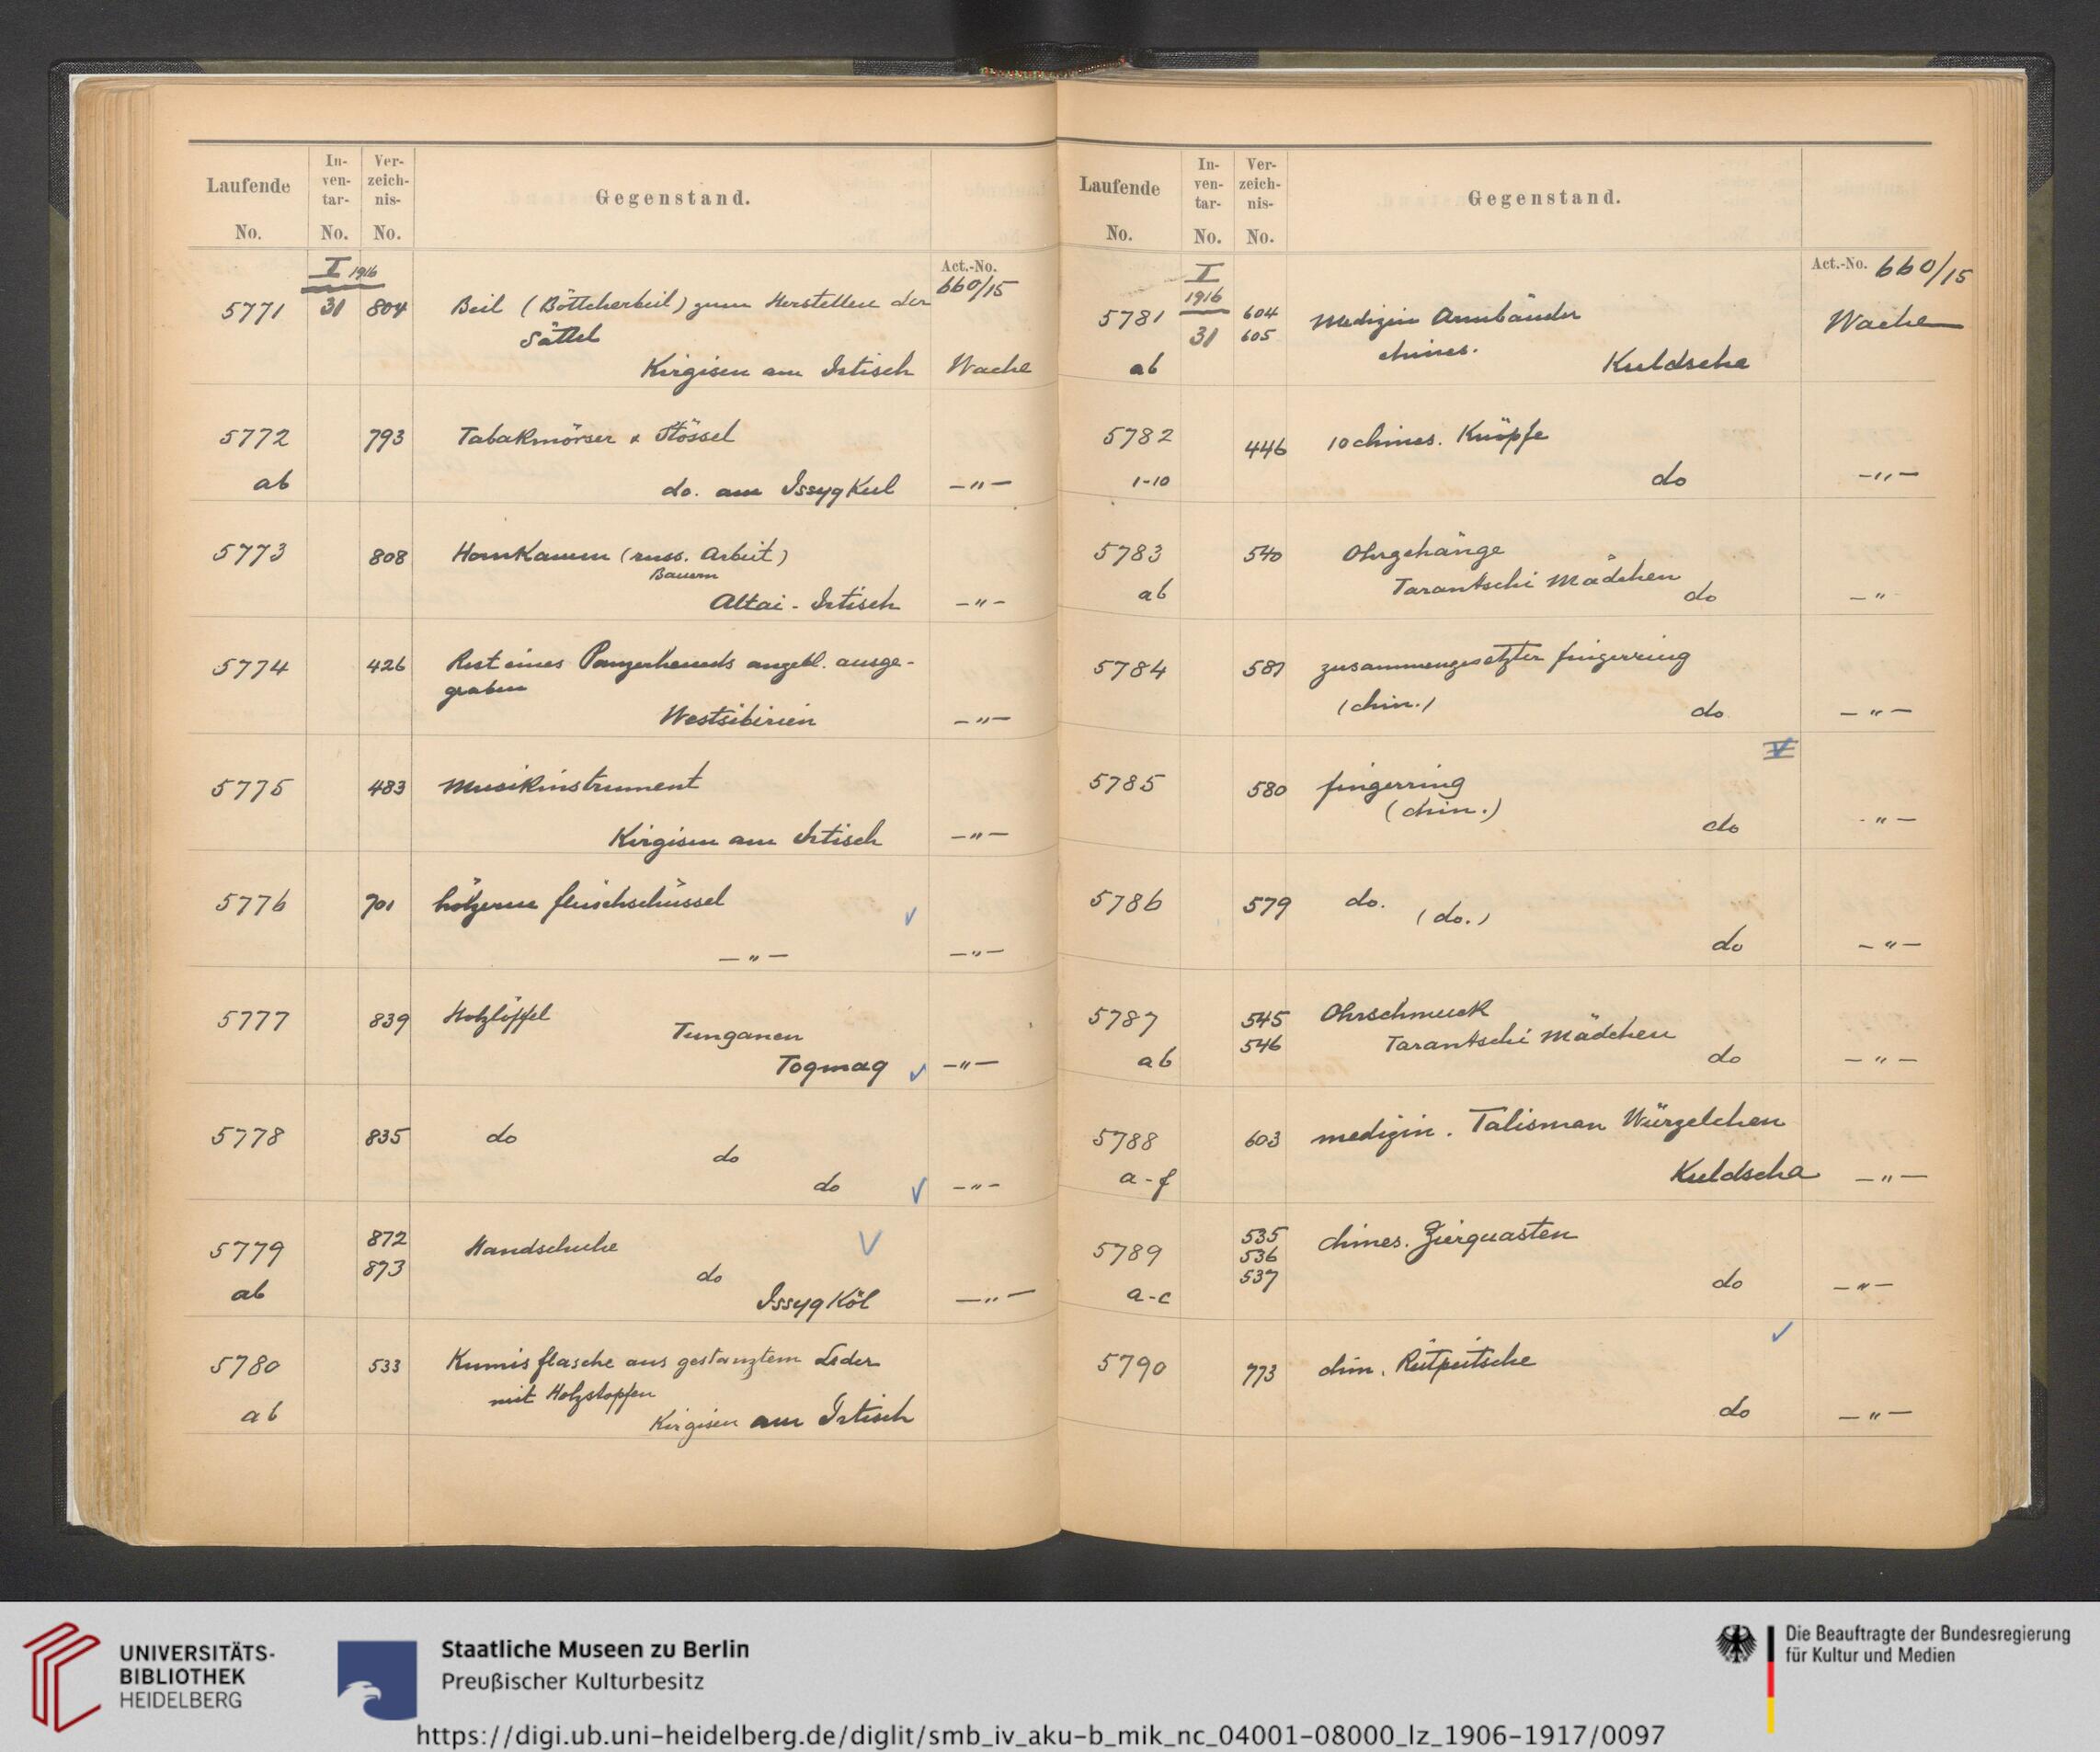 Laufende No.
In-ven-tar-No.
Ver-zeich-nis-No.
Gegenstand.
Act.-No. 660/15
I 1916
5771 31 804 Beil (Böttcherbeil) zum Herstellen der
Sättel
Kirgisen am Irtisch Wache
5772 793 Tabakmörser & Stössel
ab do. am Issyg Kul —"—
5773 808 Hornkamm (russ. Arbeit)
Bauern
Altai-Irtisch —"—
5774 426 Rest eines Panzerhemds angebl. ausge-
graben
Westsibirien —"—
5775 483 Musikinstrument
Kirgisen am Irtisch —"—
5776 701 hölzerne Fleischschüssel
—"— —"—
5777 839 Holzlöffel
Tunganen
Togmag —"—
5778 835 do
do
do —"—
5779 872 Handschuhe
873 do
ab Issyg Köl —"—
5780 533 Kumisflasche aus gestanztem Leder
mit Holzstopfen
ab Kirgisen am Irtisch
Laufende No.
In-ven-tar-No.
Ver-zeich-nis-No.
Gegenstand.
Act.-No. 660/15
I
1916
5781 31 604 Medizin Armbänder Wache
605 chines.
ab Kuldscha
5782 446 10 chines. Knöpfe
1-10 do —"—
5783 540 Ohrgehänge
Tarantschi Mädchen
ab do —"
5784 587 zusammengesetzter Fingerring
(chin.) do —"—
5785 580 Fingerring
(chin.)
do "—
5786 579 do. (do.)
do —"—
5787 545 Ohrschmuck
546 Tarantschi Mädchen
ab do —"—
5788 603 medizin. Talisman Würzelchen
a-f Kuldscha —"—
5789 535 chines. Zierquasten
536
537 do —"—
a-c
5790 773 chin. Reitpeitsche
do —"—
UNIVERSITÄTS-
BIBLIOTHEK
HEIDELBERG
Staatliche Museen zu Berlin
Preußischer Kulturbesitz
Die Beauftragte der Bundesregierung
für Kultur und Medien
https://digi.ub.uni-heidelberg.de/diglit/smb_iv_aku-b_mik_nc_04001-08000_lz_1906-1917/0097